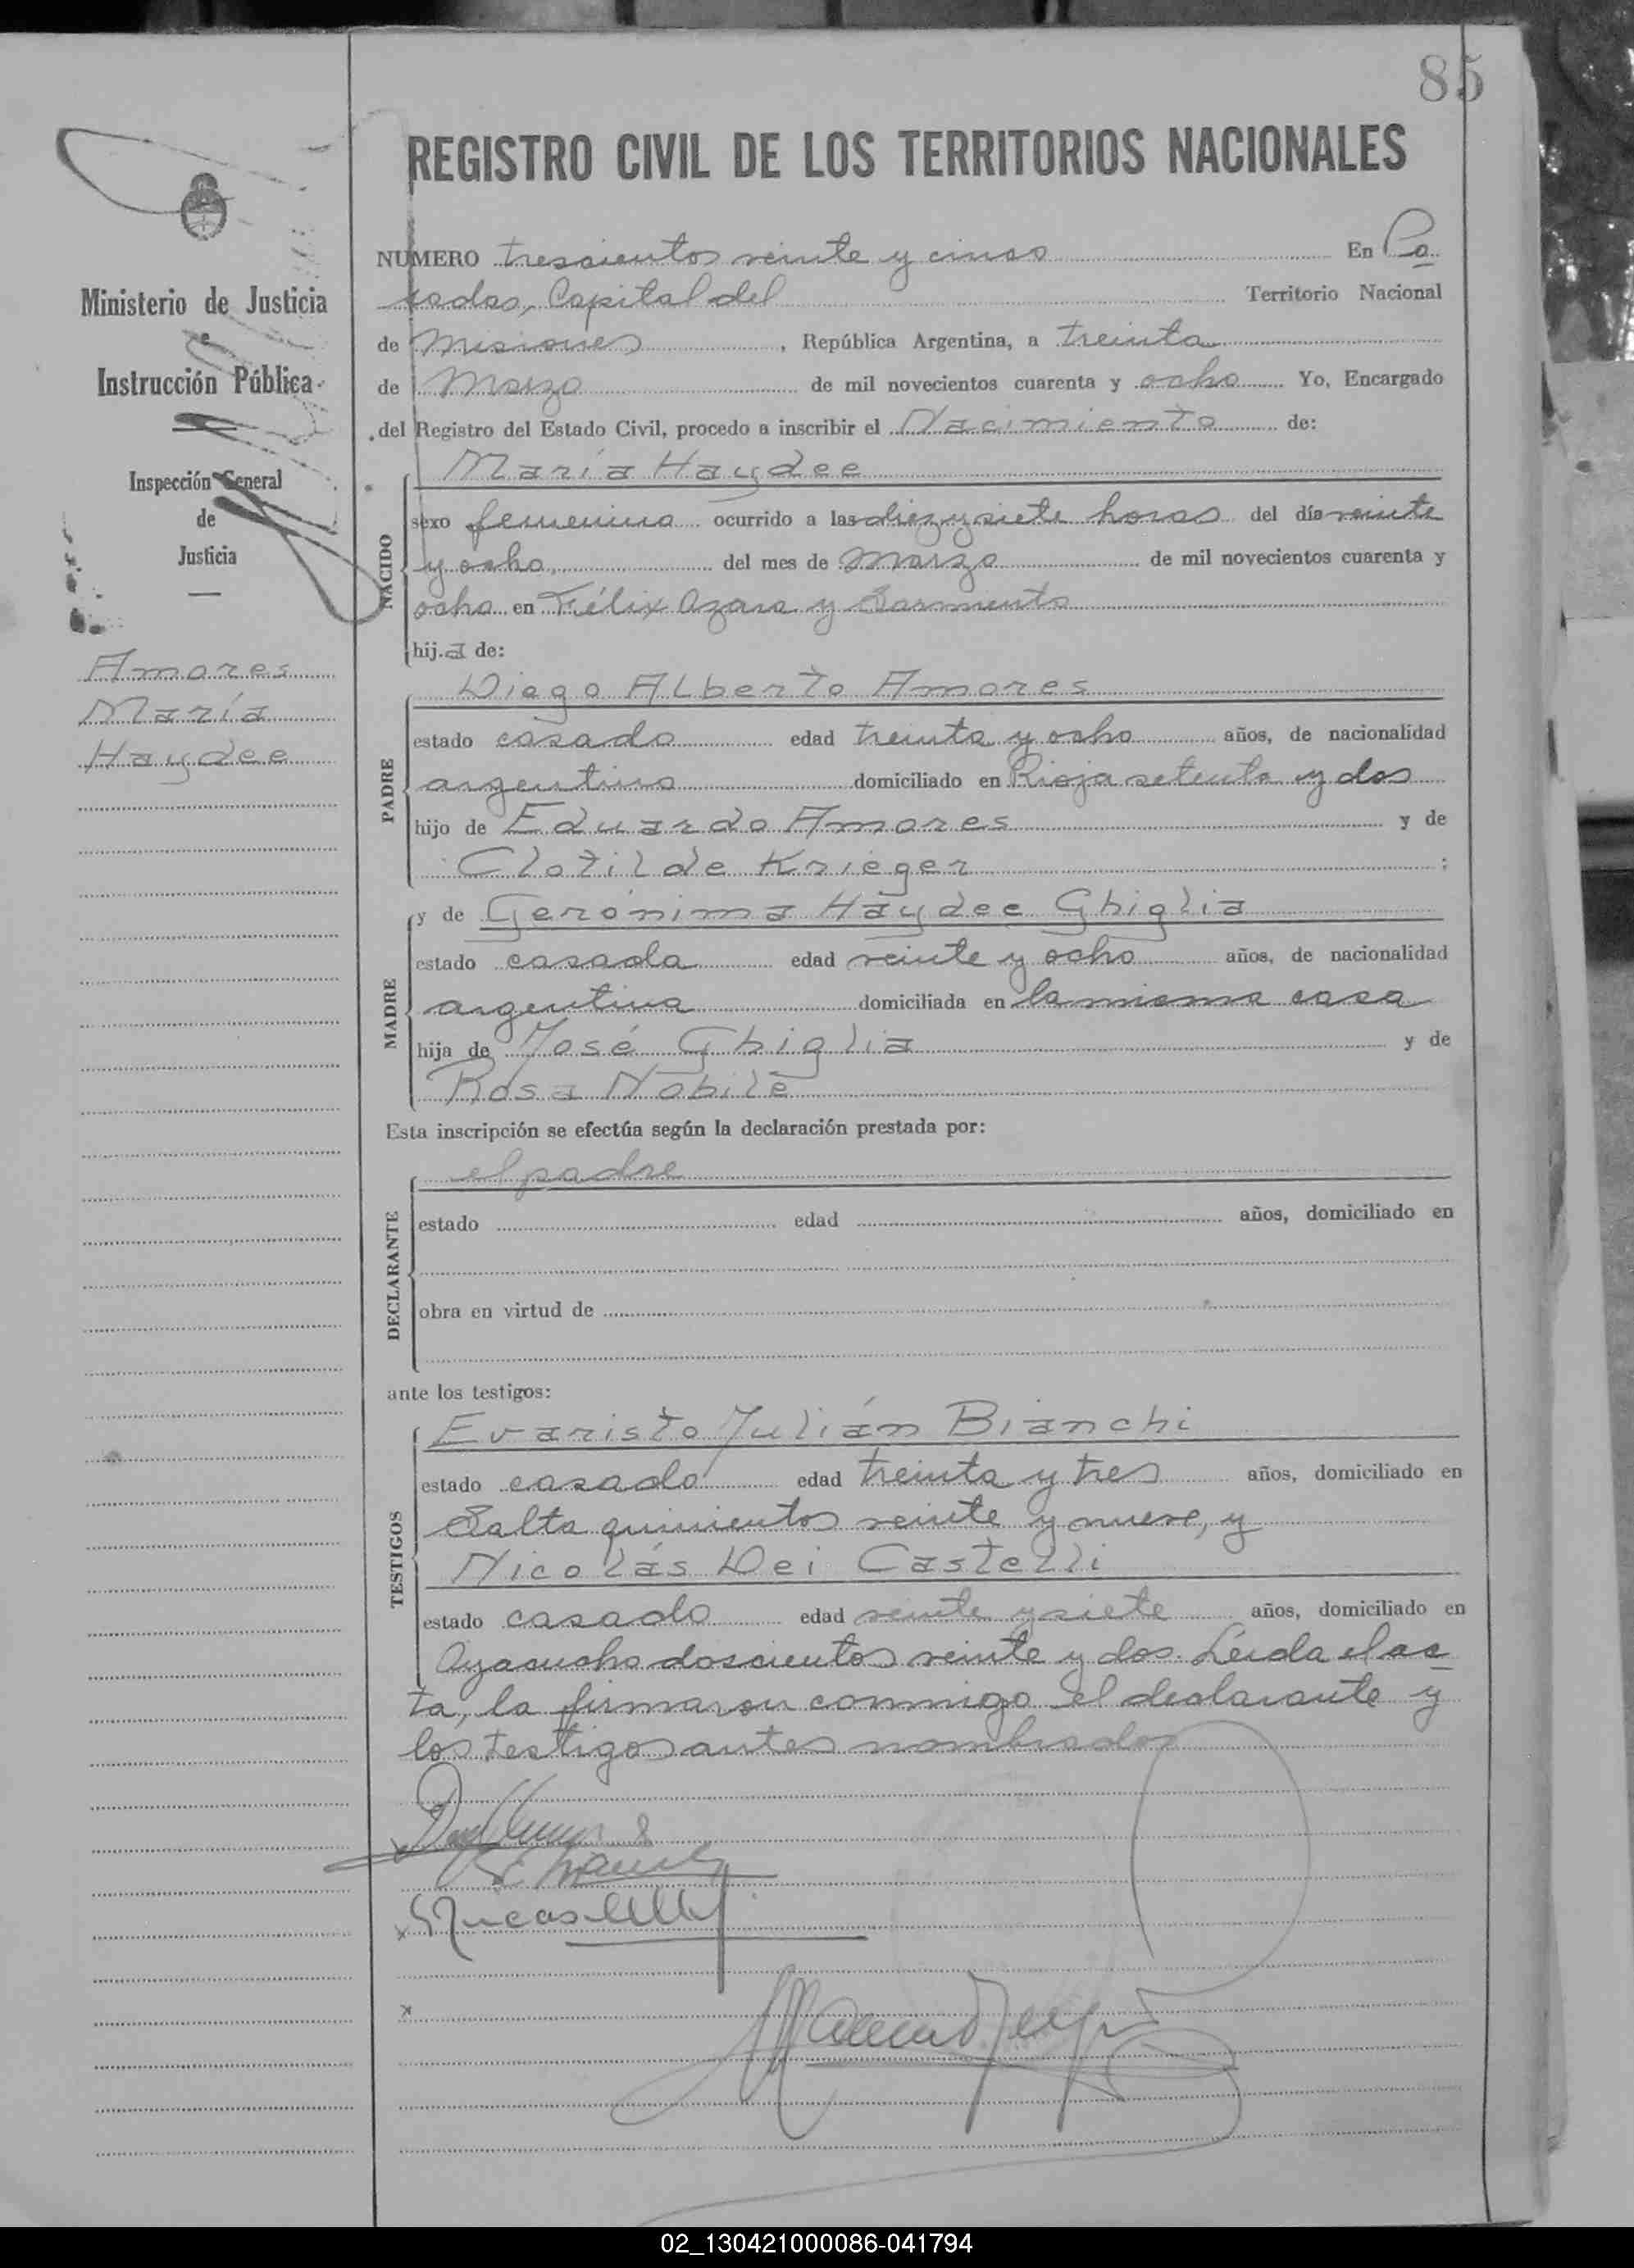 85
REGISTRO CIVIL DE LOS TERRITORIOS NACIONALES
Ministerio de Justicia
e
Instrucción Pública
Inspección General
de
Justicia
Amores
María
Haydee
NUMERO trescientos veinte y cinco En Po
sadas, Capital del Territorio Nacional
de Misiones, República Argentina, a treinta
de Marzo de mil novecientos cuarenta y ocho Yo, Encargado
del Registro del Estado Civil, procedo a inscribir el Nacimiento de:
María Haydee
NACIDO
sexo femenino ocurrido a las diez y siete horas del día veinte
y ocho del mes de Marzo de mil novecientos cuarenta y
ocho en Félix Azara y Sarmiento
hija de:
Diego Alberto Amores
PADRE
estado casado edad treinta y ocho años, de nacionalidad
argentino domiciliado en Rioja setenta y dos
hijo de Eduardo Amores y de
Clotilde Krieger;
y de Gerónima Haydee Ghiglia
MADRE
estado casada edad veinte y ocho años, de nacionalidad
argentina domiciliada en la misma casa
hija de José Ghiglia y de
Rosa Nobile
Esta inscripción se efectúa según la declaración prestada por:
el padre
DECLARANTE
estado edad años, domiciliado en
obra en virtud de
ante los testigos:
Evaristo Julián Bianchi
TESTIGOS
estado casado edad treinta y tres años, domiciliado en
Salta quinientos veinte y nueve, y
Nicolás Dei Castelli
estado casado edad veinte y siete años, domiciliado en
Ayacucho doscientos veinte y dos. Leída el ac
ta, la firmaron conmigo el declarante y
los testigos antes nombrados
02_130421000086-041794